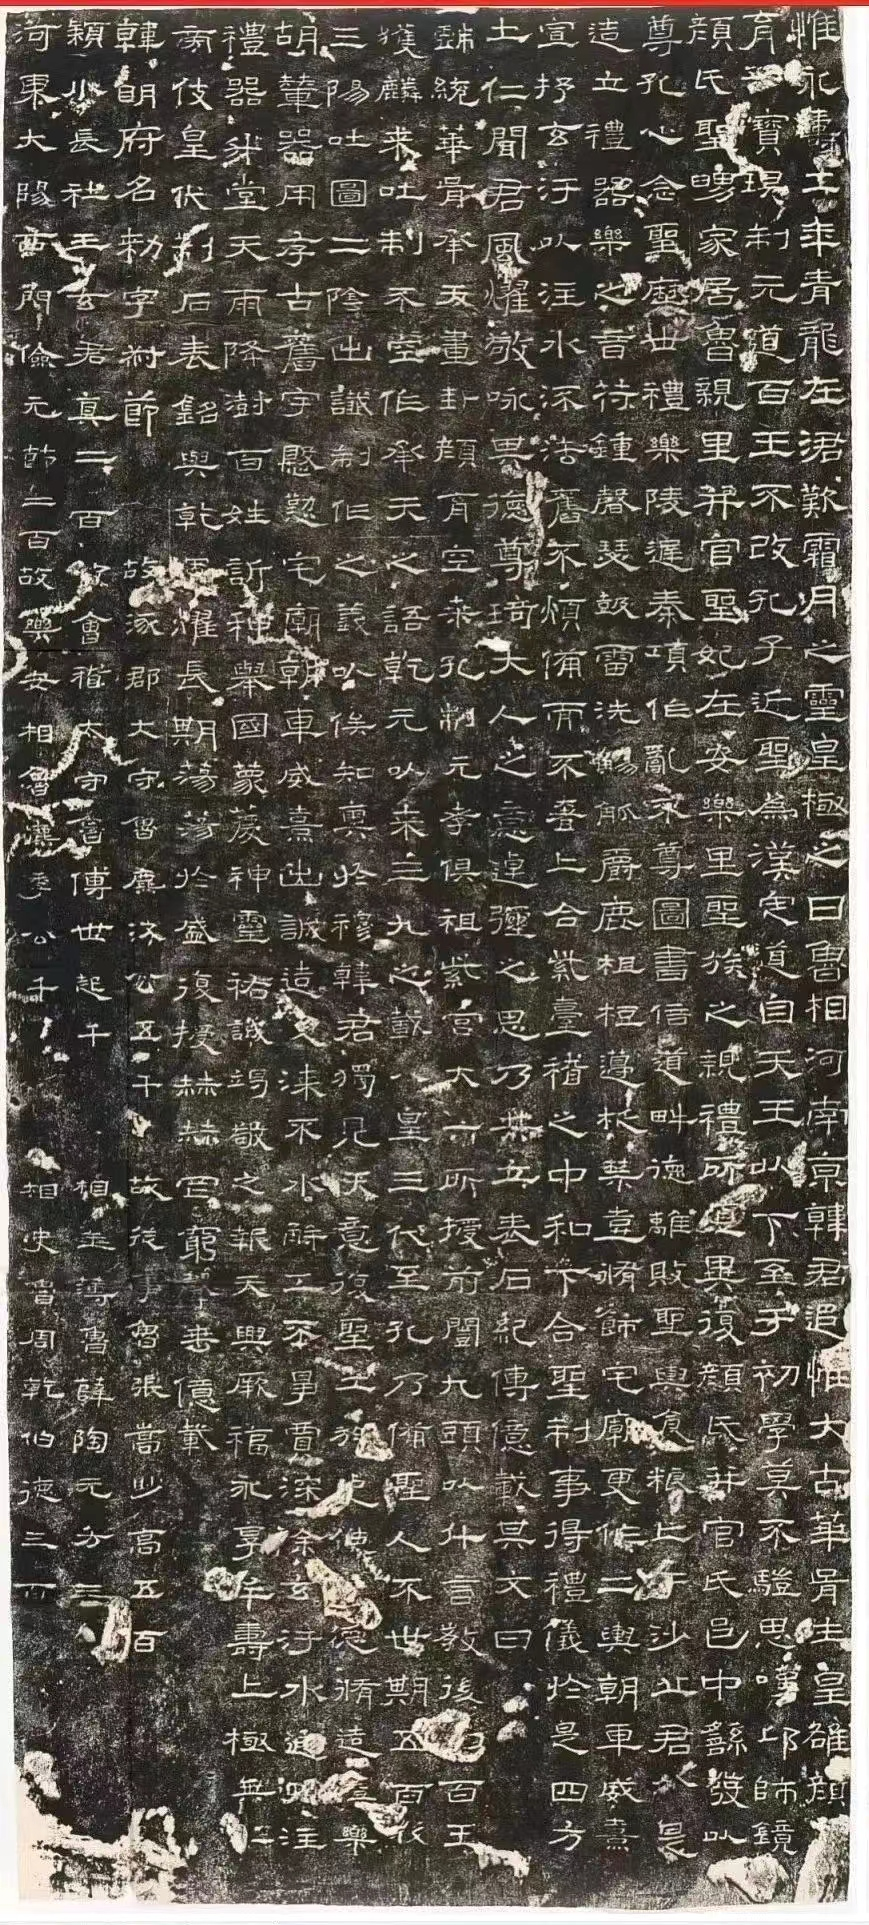 惟永壽二年青龍在涒歎霜月之靈皇極之日魯相河南京韓君追惟大古華胥生皇雄顏
育寶俱制元道百王不改孔子近聖為漢定道自天王以下至于初學莫不驥思嘆卬師鏡
顏氏聖舅家居魯親里并官聖妃在安樂里聖族之親禮所宜異復顏氏并官氏邑中繇發以
尊孔心念聖歷世禮樂陵遲秦項作亂不尊圖書倍道畔德離敗聖輿食糧亡于沙丘君於是
造立禮器樂之音符鍾磬瑟鼓雷洗觴觚爵鹿柤梪籩柉禁壺脩飾宅廟更作二輿朝車威熹
宣抒玄汙以注水流法舊不煩備而不奢上合紫臺稽之中和下合聖制事得禮儀於是四方
土仁聞君風燿敬咏其德尊琦大人之意逴彌之思乃共立表石紀傳億載其文曰
統華胥承天畫卦顏育空桑孔制元孝俱祖紫宮大一所授前闓九頭以什言教後百王
獲麟來吐制不空作承天之語乾元以來三九之載八皇三代至孔乃備聖人不世期五百載
三陽吐圖二陰出讖制作之義以俟知奧於穆韓君獨見天意復聖二族逴越絕思脩造禮樂
胡輦器用存古舊宇慇懃宅廟朝車威熹出誠造更漆不水解工不爭賈深除玄汙水通四注
禮器升堂天雨降澍百姓訢和舉國蒙慶神靈祐誠竭敬之報天與厥福永享牟壽上極華紫
旁伎皇代刊石表銘與乾運燿長期蕩蕩於盛復授赫赫罔窮聲垂億載
韓明府名勑字叔節 故涿郡大守魯麃次公五千 故從事魯張嵩眇高五百
潁川長社王玄君真二百 故會稽大守魯傅世起千 相主簿魯薛陶元方三百
河東大陽西門儉元節二百 故樂安相魯麃季公千 相史魯周乾伯德三百